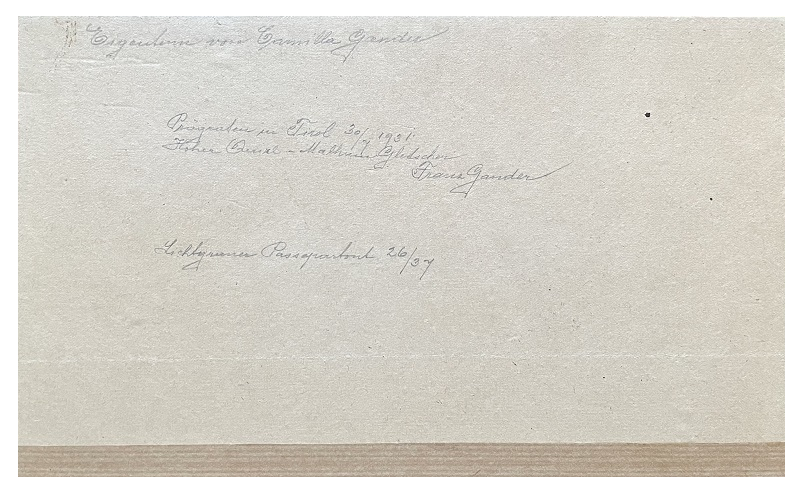 Eigentum von Camilla Gander
Prägraten in Tirol 30/7 1931.
Hoher Quirl - Gletscher
Franz Gander
Lichtgrauer Passepartout 26/37